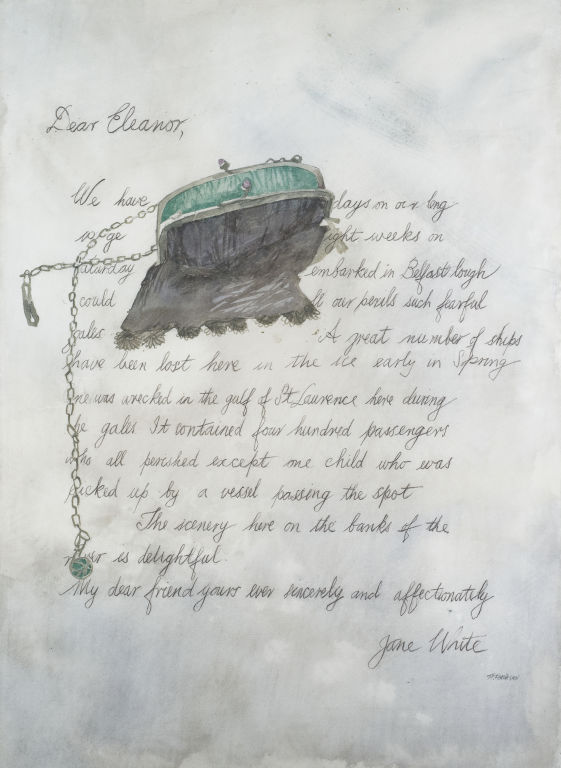 Dear Eleanor,
We have days on our long
ge ight weeks on
aturday embarked in Belfast lough
could our perils such fearful
gales A great number of ships
have been lost here in the ice early in Spring
ne was wrecked in the gulf of St Laurence here during
he gales It contained four hundred passengers
who all perished except one child who was
picked up by a vessel passing the spot
The scenery here on the banks of the
river is delightful.
My dear friend yours ever sincerely and affectionately
Jane White